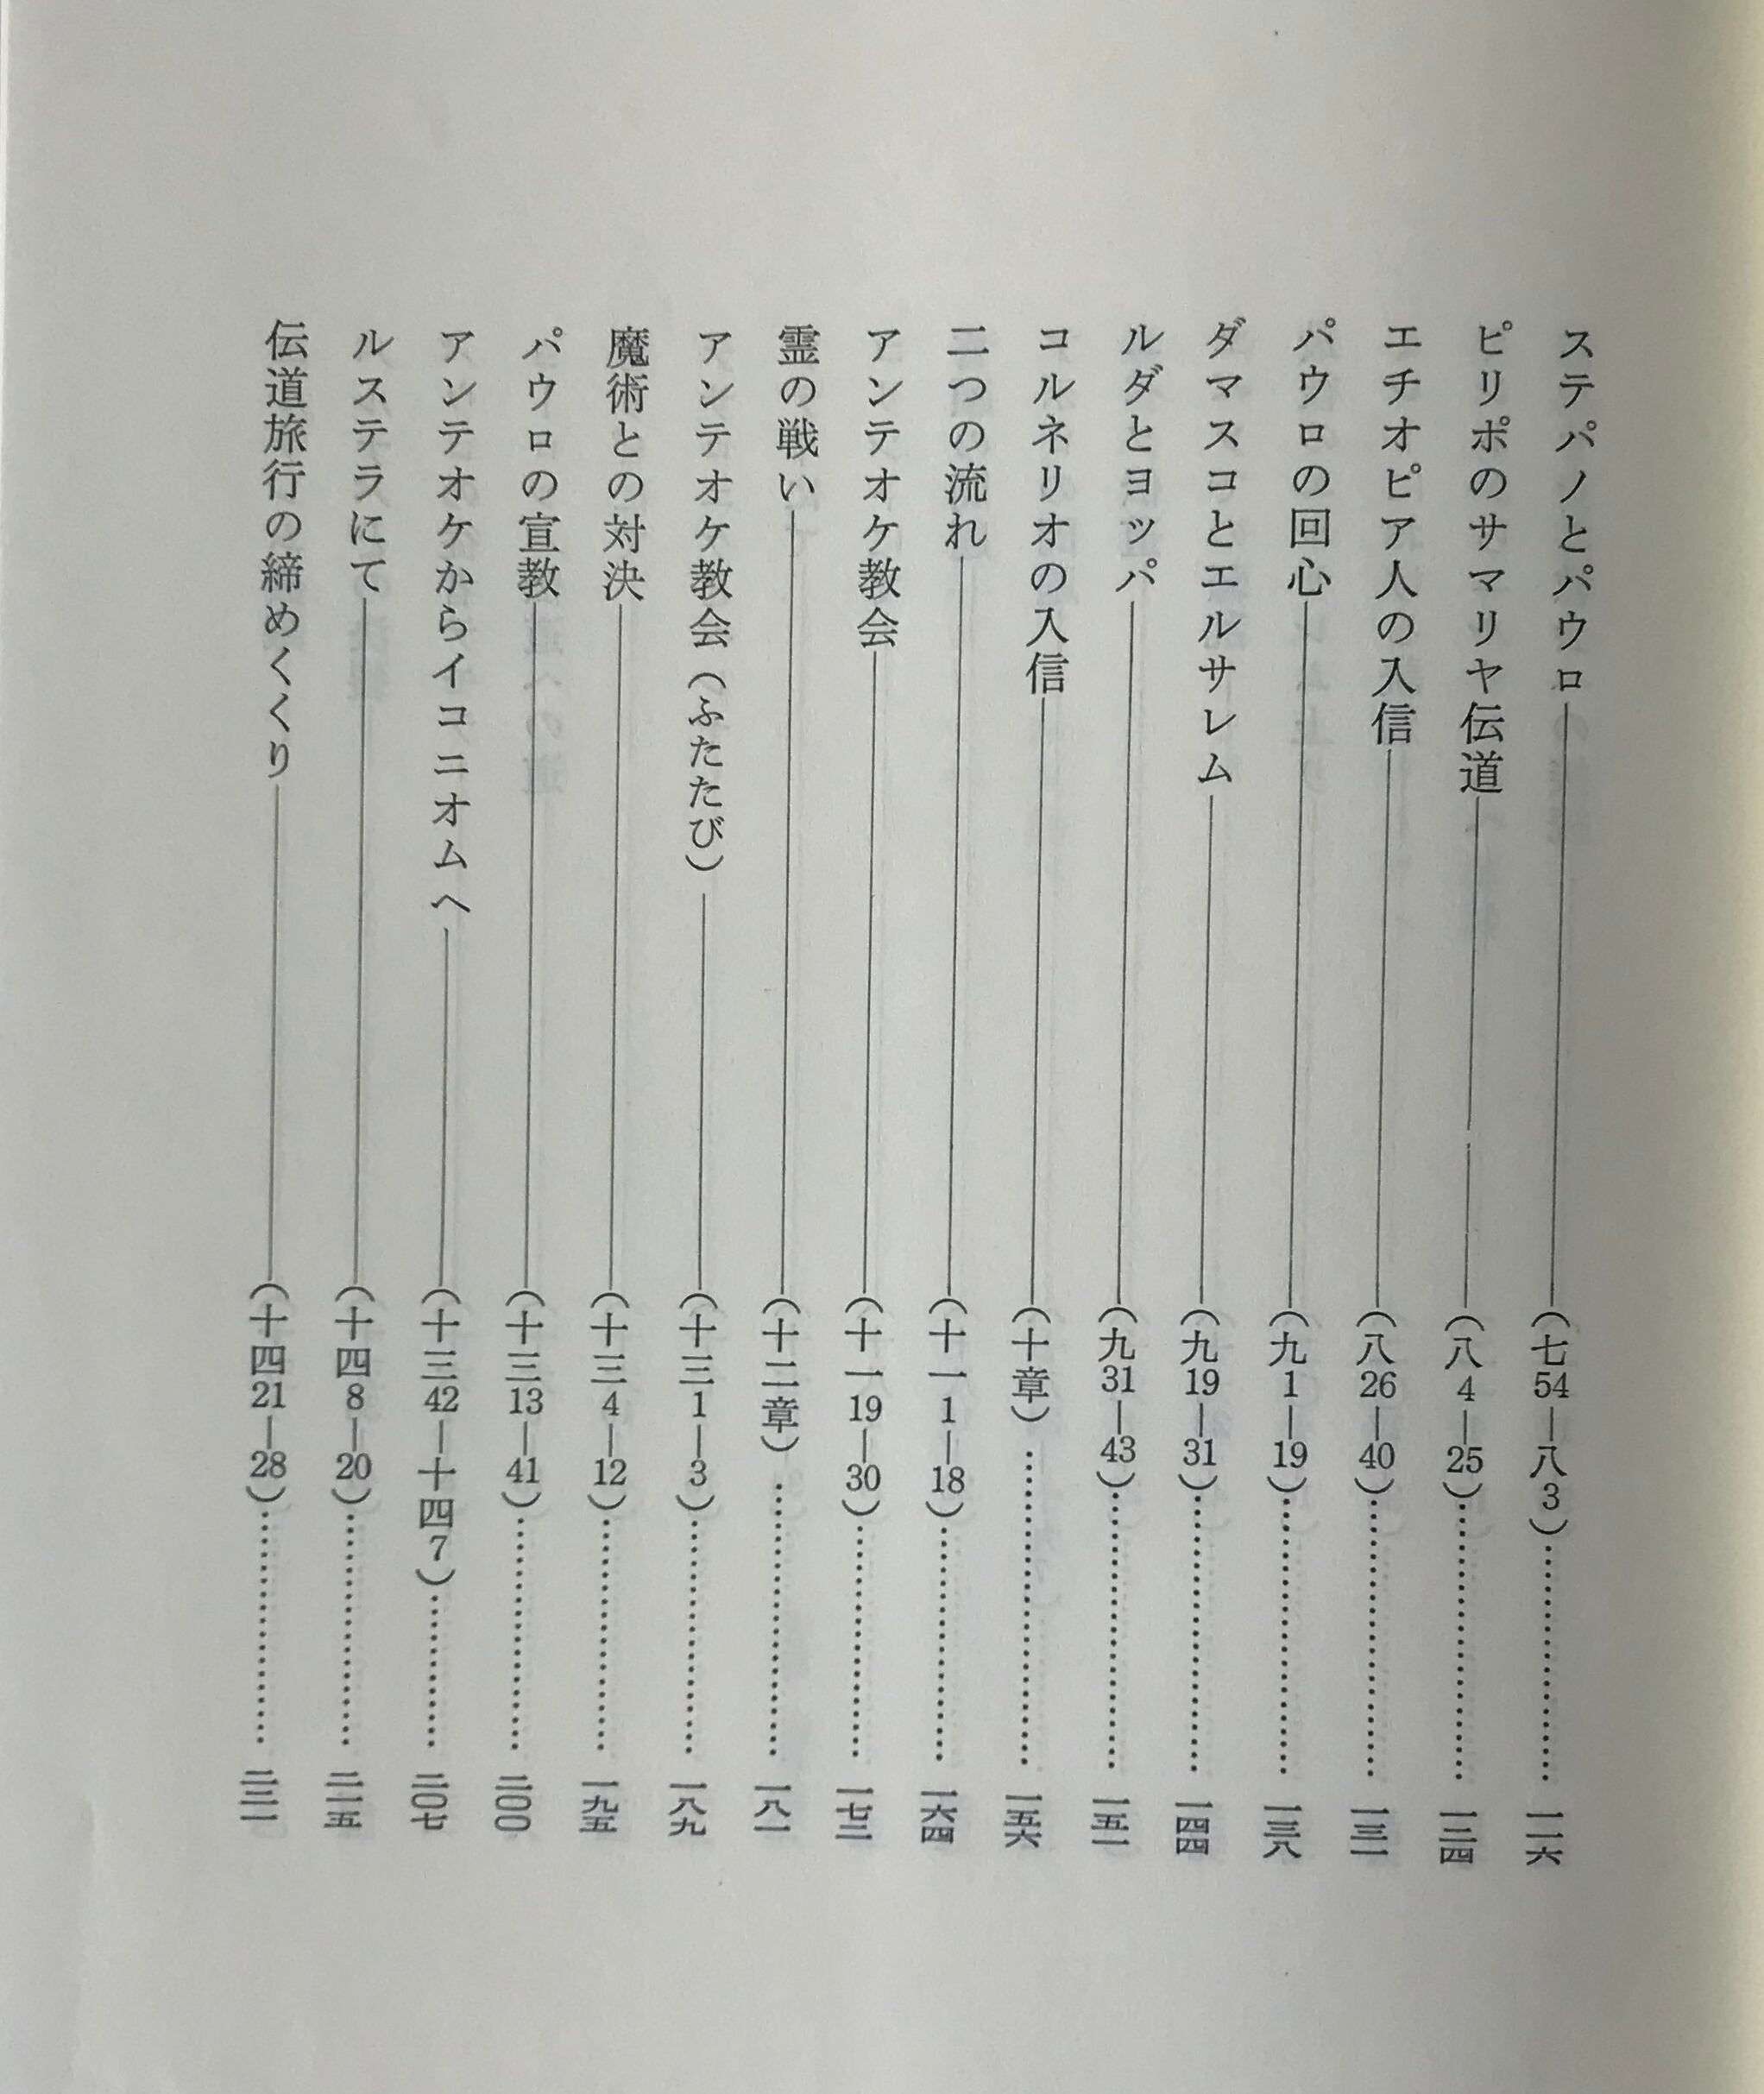 ステパノとパウロ――(七54―八3)……一一六
ピリポのサマリヤ伝道――(八4―25)……一二四
エチオピア人の入信――(八26―40)……一三一
パウロの回心――(九1―19)……一三八
ダマスコとエルサレム――(九19―31)……一四四
ルダとヨッパ――(九31―43)……一五一
コルネリオの入信――(十章)……一五六
二つの流れ――(十一1―18)……一六四
アンテオケ教会――(十一19―30)……一七三
霊の戦い――(十二章)……一八一
アンテオケ教会(ふたたび)――(十三1―3)……一八九
魔術との対決――(十三4―12)……一九五
パウロの宣教――(十三13―41)……二〇〇
アンテオケからイコニオムへ――(十三42―十四7)……二〇七
ルステラにて――(十四8―20)……二一五
伝道旅行の締めくくり――(十四21―28)……